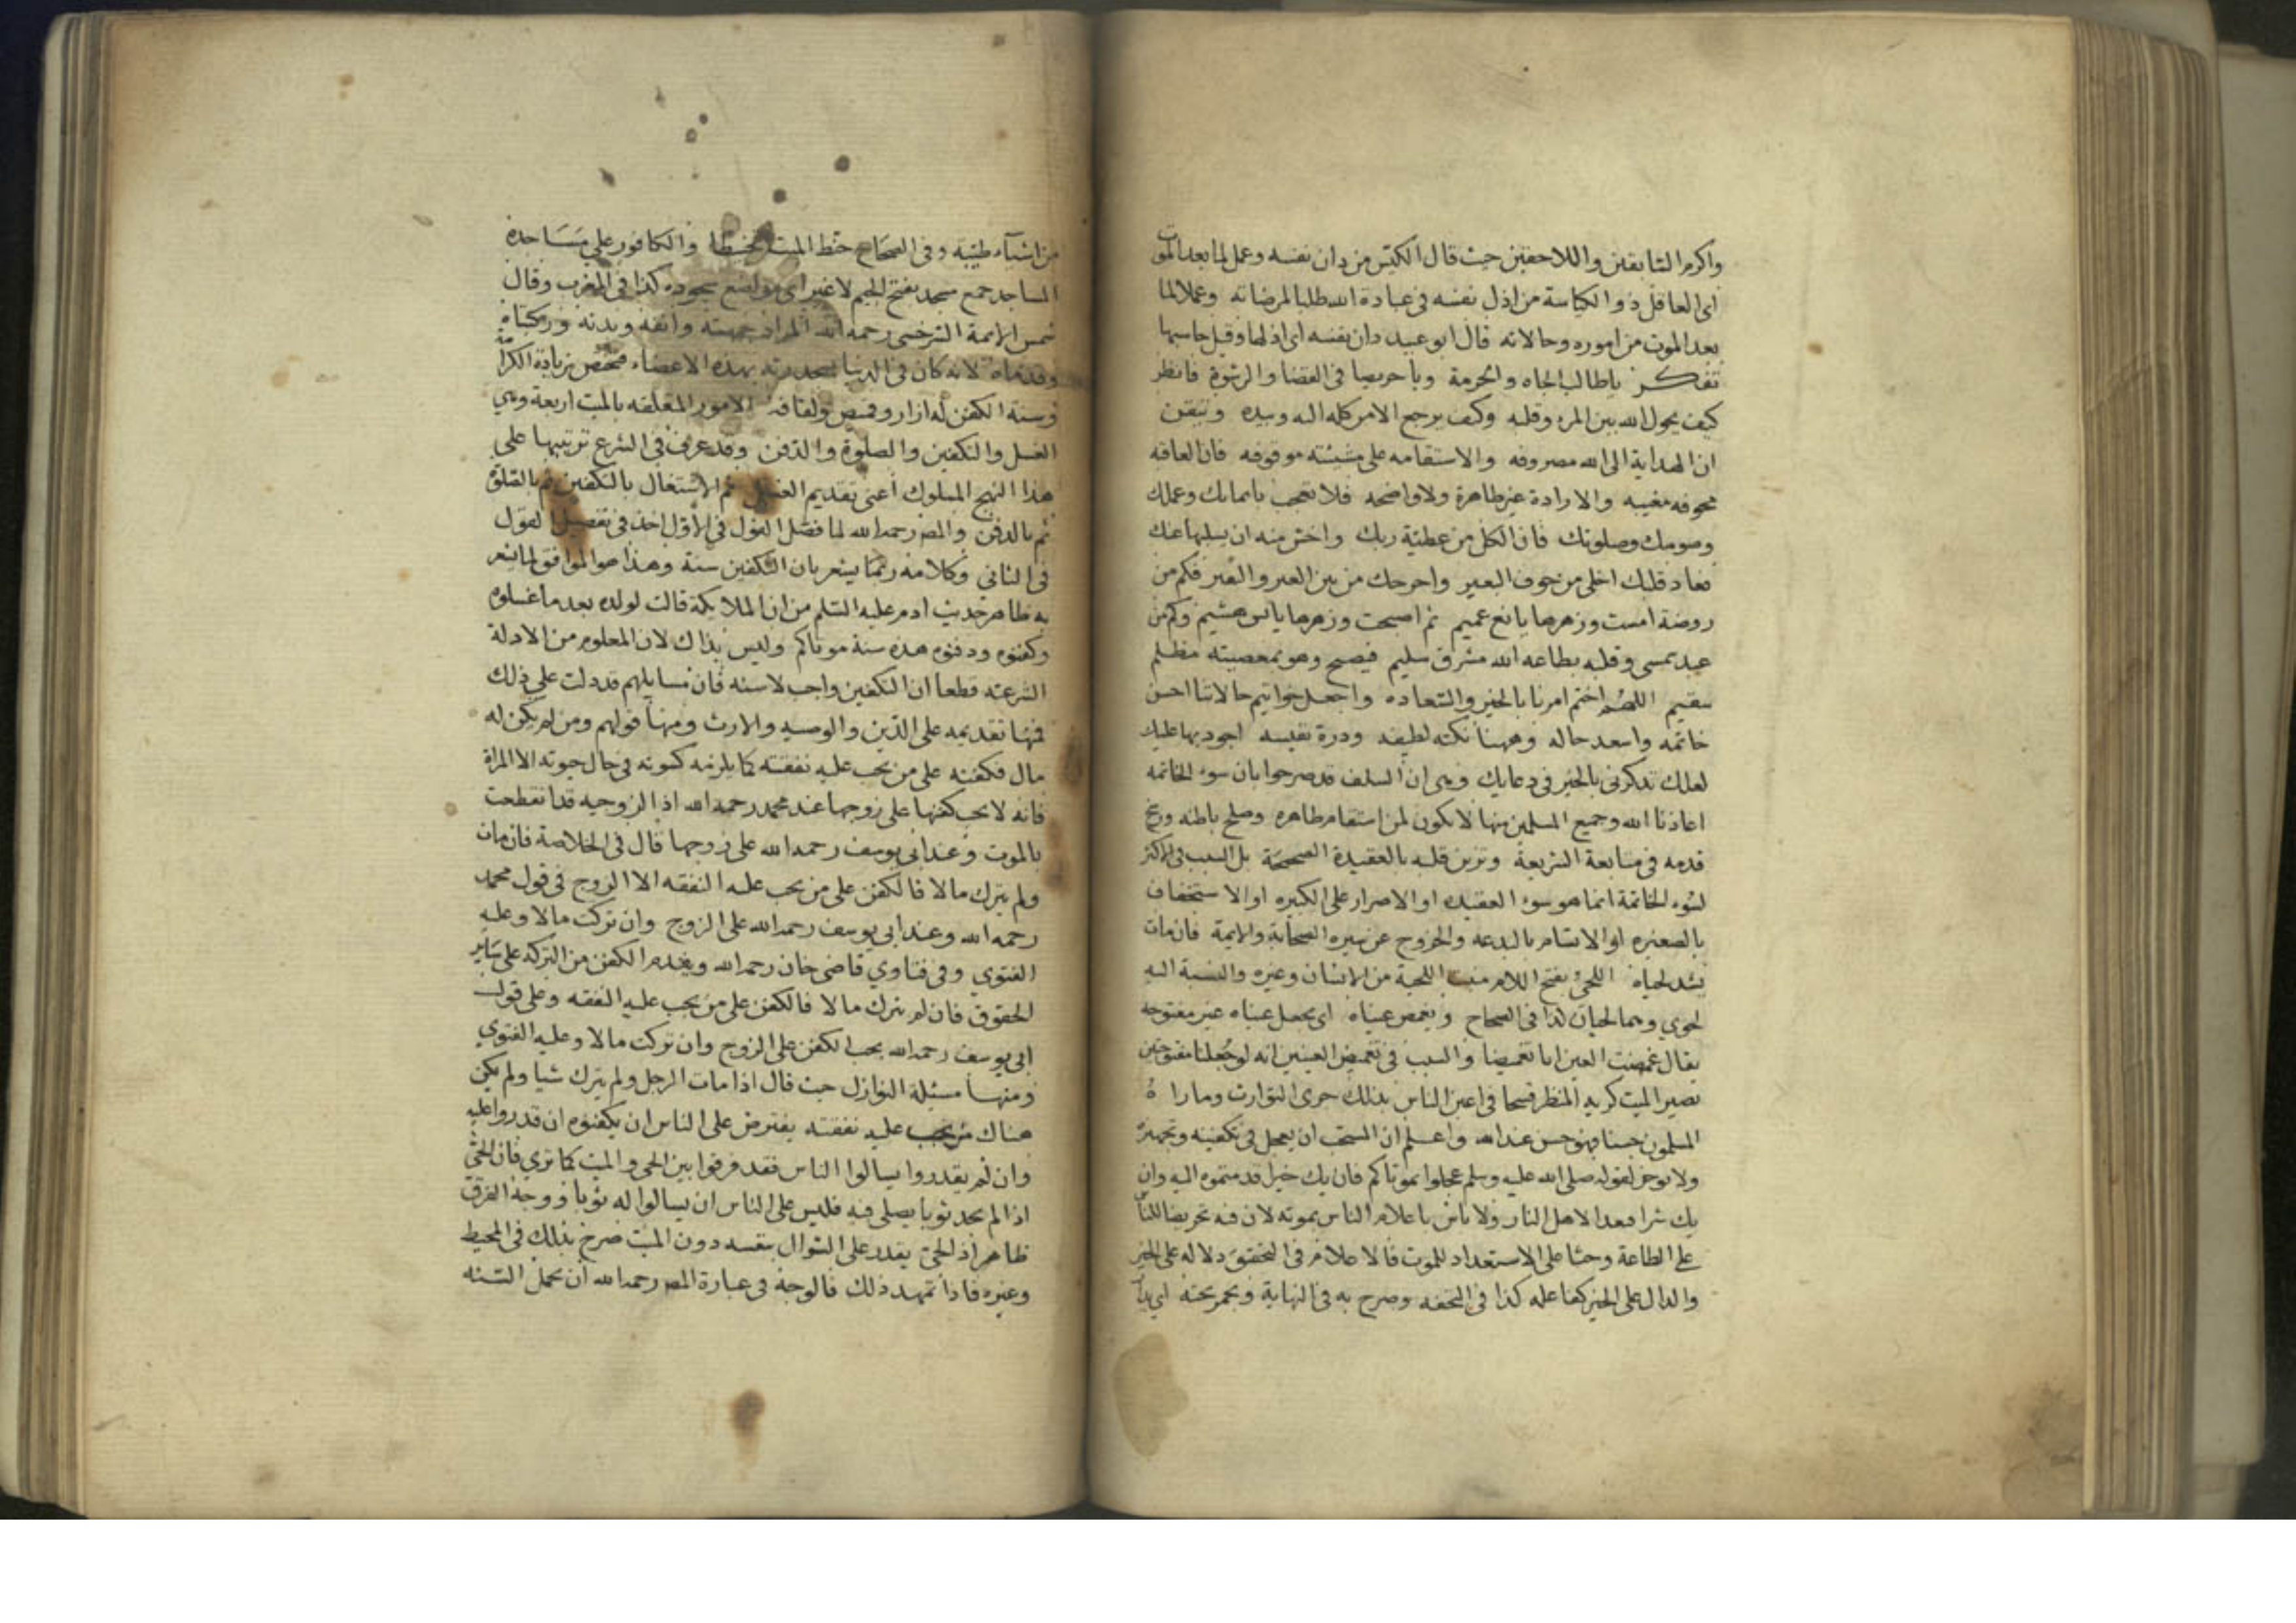 واكرم السابقين واللاحقين حيث قال الكيس من دان نفسه وعمل لما بعد الموت
اى العاقل ذو الكياسة من اذل نفسه فى عبادة الله طلبا لمرضاته وعملا لما
بعد الموت من اموره وحالاته قال ابو عبيد دان نفسه اى اذلها وقيل حاسبها
تفكر ياطالب الجاه والحرمة ويا حريصا فى القضا والرشوة فانظر
كيف يحول الله بين المرء وقلبه وكيف يرجع الامر كله اليه وبيده وتيقن
ان الهداية الى الله مصروفه والاستقامه على مشيئته موقوفه فان العاقبه
مغيبه والارادة غير ظاهرة ولا واضحه فلا تعجب بايمانك وعملك
وصومك وصلوتك فان الكل من عطية ربك واخش منه ان يسلبها عنك
فعاد قلبك اخلى من جوف البعير واحوجك من بين العير والنفير فكم من
روضة امست وزهرها يانع عميم ثم اصبحت وزهرها يابس هشيم وكم من
عبد يمسى وقلبه بطاعه الله مشرق سليم فيصبح وهو بمعصيته مظلم
سقيم اللهم اختم امرنا بالخير والسعاده واجعل خواتيم حالاتنا احسن
خاتمه واسعد حاله وههنا نكته لطيفه ودرة نفيسه اجود بها عليك
لعلك تذكرنى بالخير فى دعايك وهى ان السلف قد صرحوا بان سوء الخاتمه
اعاذنا الله وجميع المسلمين منها لا يكون لمن استقام ظاهره وصلح باطنه ورسخ
قدمه فى متابعة الشريعة وتزين قلبه بالعقيدة الصحيحة بل السبب فى الاكثر
لسوء الخاتمة انما هو سوء العقيده او الاصرار على الكبيره او الاستخفاف
بالصغيره او الاتسام بالبدعه والخروج عن سيره الصحابة والايمة فان مات
يشد لحياه اللحى بفتح اللام منبت اللحية من الانسان وغيره والنسبة اليه
لحوي وهما لحيان كذا فى الصحاح ويغمض عيناه اى يجعل عيناه غير مفتوحه
يقال غمضت العين اياتغميضا والسبب فى تغميض العينين انه لو جعلنا مفتوحتين
يصير الميت كريه المنظر قبيحا فى اعين الناس بذلك جرى التوارث وما راه
المسلمون حسنا فهو حسن عند الله واعلم ان المستحب ان يعجل فى تكفينه وتجهيزه
ولا يوخر لقوله صلى الله عليه وسلم عجلوا بموتاكم فان يك خيرا قدمتموه اليه وان
يك شرا فبعدا لاهل النار ولا باس باعلام الناس بموته لان فيه تحريضا للناس
على الطاعة وحثا على الاستعداد للموت فالاعلام فى التحقيق دلاله على الخير
والدال على الخير كفاعله كذا فى التحفه وصرح به فى النهاية ويجمر تخته اى
من اشياء طيبه وفى الصحاح حنط الميت تحنيطا والكافور على مساجده
المساجد جمع مسجد بفتح الجيم لا غير اى مواضع سجوده كذا فى المغرب وقال
شمس الايمة السرخسى رحمه الله المراد جبهته وانفه ويديه وركبتاه
وقدماه لانه كان فى الدنيا يسجد بهذه الاعضاء فتختص بزيادة الكرامة
وسنة الكفن له ازار وقميص ولفافة الامور المتعلقه بالميت اربعة وهي
الغسل والتكفين والصلوة والدفن وقد عرف فى الشرع ترتيبها على
هذا النهج المسلوك اعنى تقديم الغسل ثم الاشتغال بالتكفين ثم بالصلوة
ثم بالدفن والمص رحمه الله لما فصل القول فى الاول اخذ فى تفصيل القول
فى الثانى وكلامه ربما يشعر بان التكفين سنة وهذا هو الموافق لما يشعر
به ظاهر حديث ادم عليه السلم من ان الملايكة قالت لولده بعد ما غسلوه
وكفنوه ودفنوه هذه سنة موتاكم وليس بذاك لان المعلوم من الادلة
الشرعيه قطعا ان التكفين واجب لا سنه فان مسايلهم قد دلت على ذلك
فمنها تقديمه على الدين والوصيه والارث ومنها قولهم ومن لم يكن له
مال فكفنه على من يجب عليه نفقته كما يلزمه كسوته فى حال حيوته الا المراة
فانه لا يجب كفنها على زوجها عند محمد رحمه الله اذ الزوجيه قد انقطعت
بالموت وعند ابى يوسف رحمه الله على زوجها قال فى الخلاصة فان مات
ولم يترك مالا فالكفن على من يجب عليه النفقه الا الزوج فى قول محمد
رحمه الله وعند ابى يوسف رحمه الله على الزوج وان تركت مالا وعليه
الفتوي وفى فتاوي قاضى خان رحمه الله ويقدم الكفن من التركه على ساير
الحقوق فان لم يترك مالا فالكفن على من يجب عليه النفقه وعلى قول
ابى يوسف رحمه الله يجب الكفن على الزوج وان تركت مالا وعليه الفتوي
ومنها مسئلة النوازل حيث قال اذا مات الرجل ولم يترك شيا ولم يكن
هناك من يجب عليه نفقته يفترض على الناس ان يكفنوه ان قدروا عليه
وان لم يقدروا يسالوا الناس فقد فرقوا بين الحى والميت كما تري فان الحى
اذا لم يجد ثوبا يصلى فيه فليس على الناس ان يسالوا له ثوبا ووجه الفرق
ظاهر اذ الحى يقدر على السوال بنفسه دون الميت صرح بذلك فى المحيط
وغيره فاذا تمهد ذلك فالوجه فى عبارة المص رحمه الله ان يحمل السنه